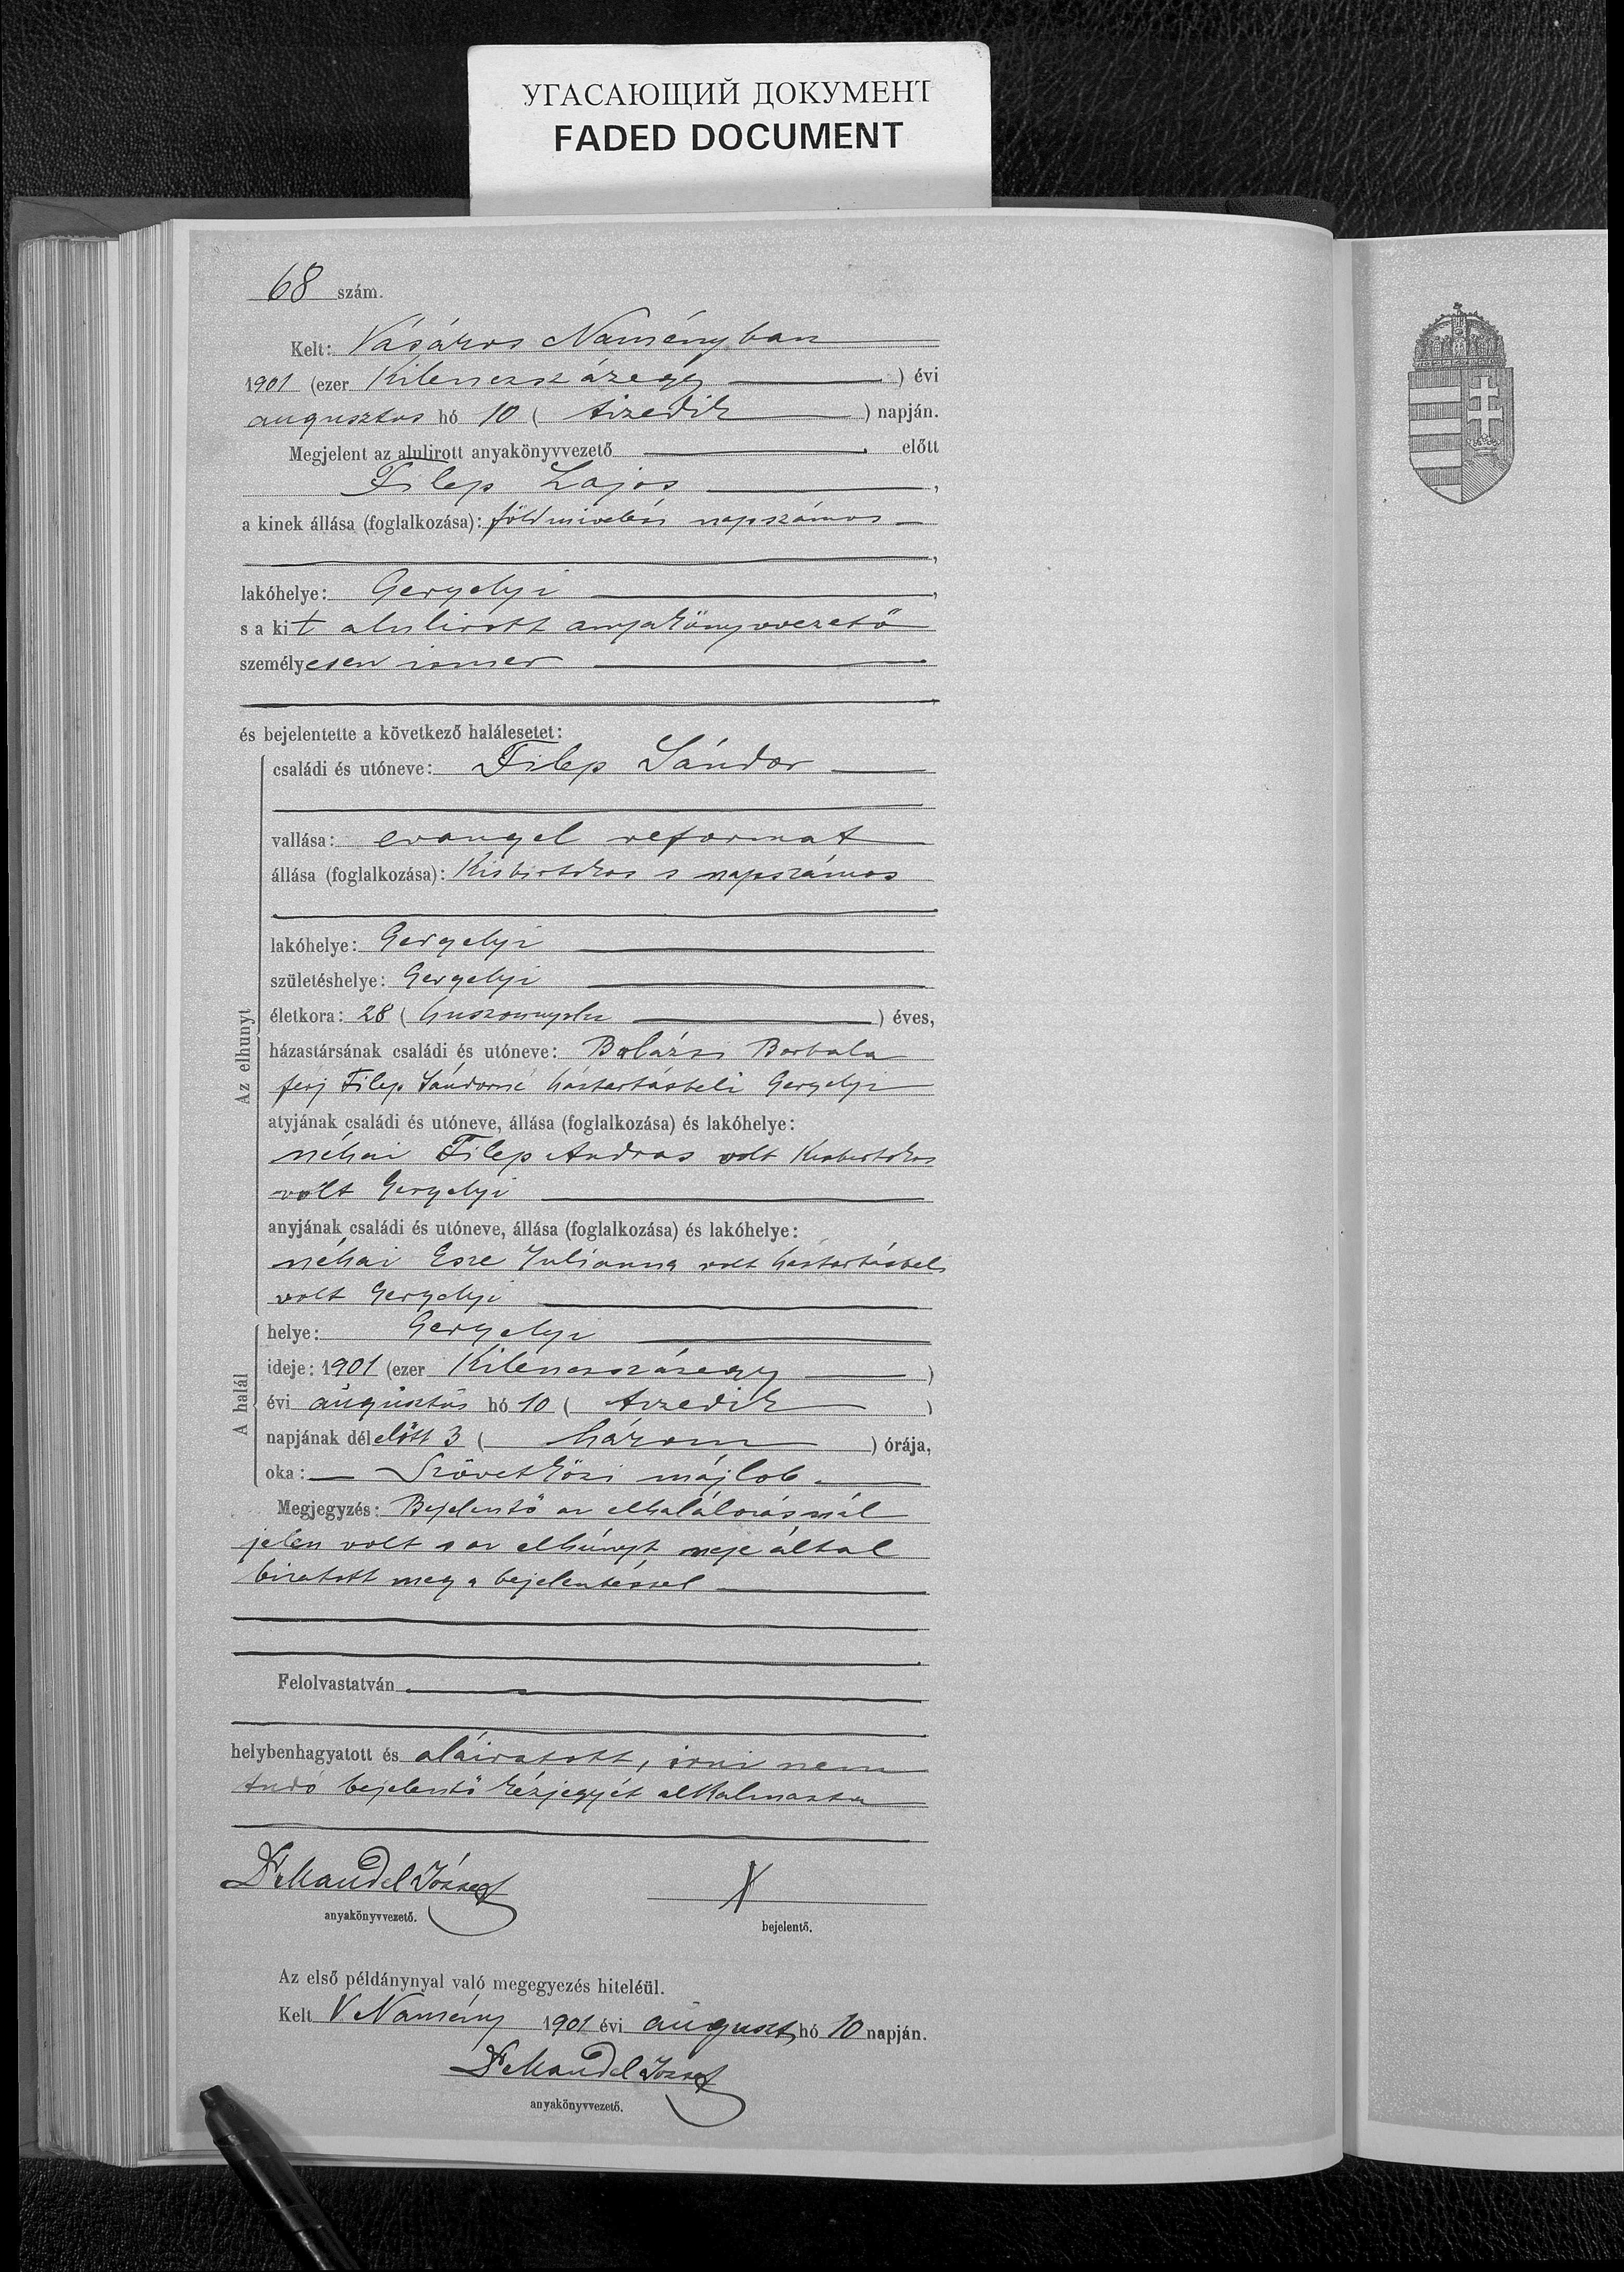 УГАСАЮЩИЙ ДОКУМЕНТ
FADED DOCUMENT
68 szám.
Kelt: Vásáros Naményban
1901 (ezer Kilenczszázegy ) évi
augusztus hó 10 ( tizedik ) napján.
Megjelent az alulirott anyakönyvvezető előtt
Filep Lajos ,
a kinek állása (foglalkozása): földmivelés napszámos
,
lakóhelye: Gergelyi ,
s a kit alulirott anyakönyvvezető
személyesen ismer
és bejelentette a következő halálesetet:
Az elhunyt
családi és utóneve: Filep Sándor
vallása: evangel reformat
állása (foglalkozása): Kisbirtokos s napszámos
lakóhelye: Gergelyi
születéshelye: Gergelyi
életkora: 28 ( huszonnyolc ) éves,
házastársának családi és utóneve: Balázsi Borbala
férj Filep Sándorné háztartásbeli Gergelyi
atyjának családi és utóneve, állása (foglalkozása) és lakóhelye:
néhai Filep Andras volt Kisbirtokos
volt Gergelyi
anyjának családi és utóneve, állása (foglalkozása) és lakóhelye:
néhai Esze Julianna volt háztartásbeli
volt Gergelyi
A halál
helye: Gergelyi
ideje: 1901 (ezer Kilenczszázegy )
évi augusztus hó 10 ( tizedik )
napjának délelőtt 3 ( három ) órája,
oka: Szövetközi májlob.
Megjegyzés: Bejelentő az elhalálozásnál
jelen volt s az elhúnyt neje által
bizatott meg a bejelentéssel
Felolvastatván
helybenhagyatott és aláiratott, irni nem
tudó bejelentő kézjegyét alkalmazta
Dr Mandel József X
anyakönyvvezető. bejelentő.
Az első példánynyal való megegyezés hiteléül.
Kelt V Namény 1901 évi auguszt hó 10 napján.
Dr Mandel József
anyakönyvvezető.